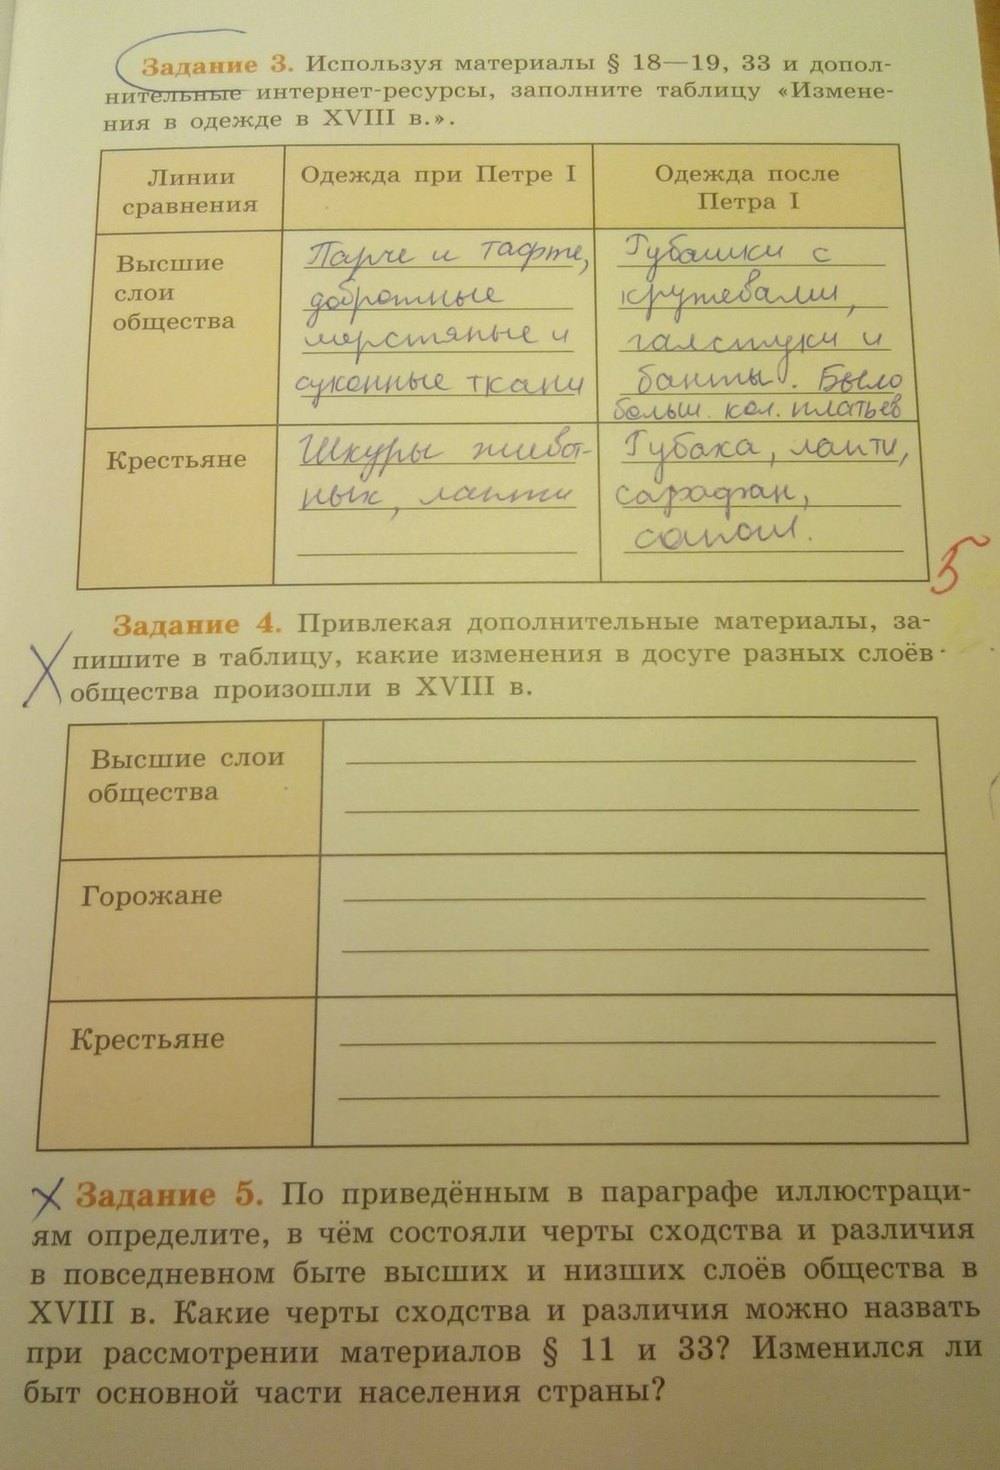 Задание 3. Используя материалы § 18—19, 33 и допол-
нительные интернет-ресурсы, заполните таблицу «Измене-
ния в одежде в XVIII в.».
Линии
сравнения
Одежда при Петре I
Одежда после
Петра I
Высшие
слои
общества
Парче и тафте,
добротные
шерстяные и
суконные ткани
Рубашки с
кружевами,
галстуки и
банты. Было
больш. кол. платьев
Крестьяне
Шкуры живот-
ных, лапти
Рубаха, лапти,
сарафан,
сапоги.
5
Задание 4. Привлекая дополнительные материалы, за-
пишите в таблицу, какие изменения в досуге разных слоёв
общества произошли в XVIII в.
Высшие слои
общества
Горожане
Крестьяне
Задание 5. По приведённым в параграфе иллюстраци-
ям определите, в чём состояли черты сходства и различия
в повседневном быте высших и низших слоёв общества в
XVIII в. Какие черты сходства и различия можно назвать
при рассмотрении материалов § 11 и 33? Изменился ли
быт основной части населения страны?